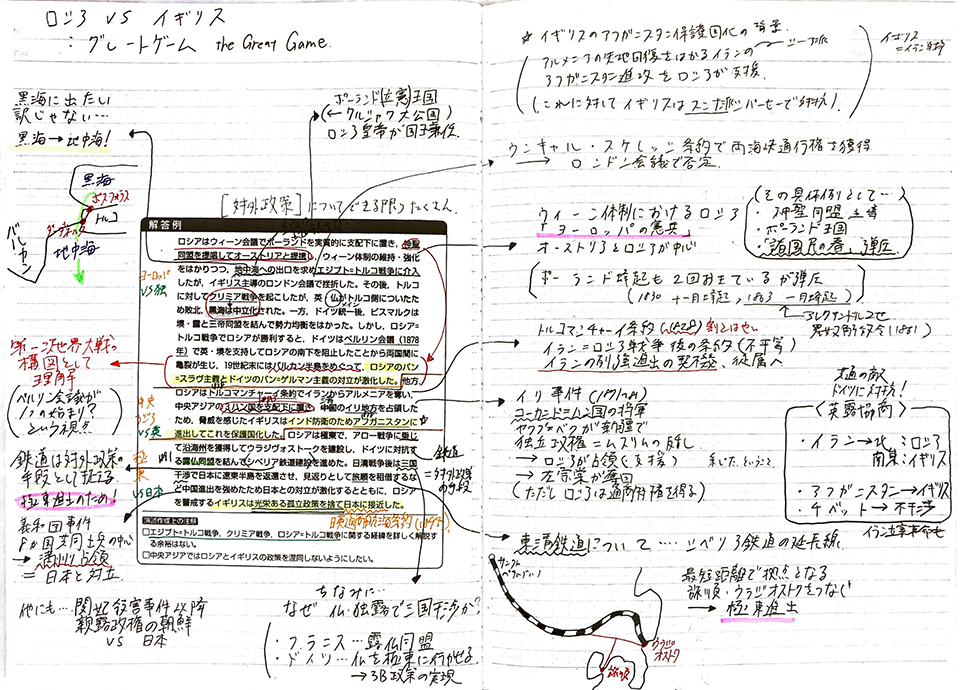 ロシア VS イギリス
:グレートゲーム the Great Game.
黒海に出たい
訳じゃない…
黒海→地中海!
黒海
ボスフォラス
トルコ
地中海
バルカン
ポーランド[立憲]王国
(← ワルシャワ大公国)
ロシア皇帝が国王兼位
[対外政策]についてできるPRたくさん
解答例
ロシアはウィーン会議でポーランドを実質的に支配下に置き、神聖
同盟を提唱してオーストリアと提携し、ウィーン体制の維持・強化
をはかりつつ、地中海への出口を求めエジプト=トルコ戦争に介入
したが、イギリス主導のロンドン会議で挫折した。その後、トルコ
に対してクリミア戦争を起こしたが、英・仏がトルコ側についたた
め敗北、黒海は中立化された。一方、ドイツ統一後、ビスマルクは
墺・露と三帝同盟を結んで勢力均衡をはかった。しかし、ロシア=
トルコ戦争でロシアが勝利すると、ドイツはベルリン会議(1878
年)で英・墺を支持してロシアの南下を阻止したことから両国間に
亀裂が生じ、19世紀末にはバルカン半島をめぐって、ロシアのパン
=スラヴ主義とドイツのパン=ゲルマン主義の対立が激化した。他方、
ロシアはトルコマンチャーイ条約でイランからアルメニアを奪い、
中央アジアの3ハン国を支配下に置き、中国のイリ地方を占領した
ため、脅威を感じたイギリスはインド防衛のためアフガニスタンに
進出してこれを保護国化した。ロシアは極東で、アロー戦争に乗じ
て沿海州を獲得してウラジヴォストークを建設し、ドイツに対抗す
る露仏同盟を結んでシベリア鉄道建設を進めた。日清戦争後は三国
干渉で日本に遼東半島を返還させ、見返りとして旅順を租借するな
ど中国進出を強めたため日本との対立が激化するとともに、ロシア
を警戒するイギリスは光栄ある孤立政策を捨て日本に接近した。
演習作成上の注意
□エジプト=トルコ戦争、クリミア戦争、ロシア=トルコ戦争に関する経緯を詳しく解説す
る余裕はない。
□中央アジアではロシアとイギリスの政策を混同しないようにしたい。
ヨーロッパ
VS独
中央
アジア
VS英
極
東
VS日本
第一次世界大戦の
構図として
理解
(ベルリン会議が
1つの始まり?
という視点)
鉄道は対外政策の
手段として捉える
極東進出のため!
義和団事件
8カ国共同出兵の中心
→満州占領
=日本と対立
他にも…閔妃殺害事件以降
親露政権の朝鮮
VS 日本
鉄道
=対外政策
の手段
日英通商航海条約(1894)
ちなみに…
なぜ 仏・独・露で三国干渉か?
・フランス…露仏同盟
・ドイツ…仏を極東に行かせる
→3B政策の実現
☆イギリスのアフガニスタン保護国化の背景
アルメニアの失地回復をはかるイランの
アフガニスタン進攻をロシアが支援.
(これに対してイギリスは
イギリス
=イラン戦争
ウンキャル・スケレッシ条約で両海峡通行権を獲得
→ ロンドン会議で否定.
ウィーン体制におけるロシア
「ヨーロッパの憲兵」
オーストリアとロシアが中心
(その具体例として…
・神聖同盟主導
・ポーランド王国
・「諸国民の春」弾圧
ポーランド蜂起も2回おきているが弾圧
(1830 十一月蜂起, 1863 一月蜂起)
アレクサンドル2世
農奴解放令(1861)
トルコマンチャーイ条約(1828)
イラン=ロシア戦争後の条約(不平等)
イランの列強進出の契機, 従属へ
イリ事件 (1871〜81)
コーカンド=ハン国の将軍
ヤクブ=ベクが新疆で
独立政権=ムスリムの反乱
→ロシアが占領(支援)
→左宗棠が奪回
(ただしロシアは通商特権を得る)
共通の敵
ドイツに対抗!
<英露協商>
・イラン→北:ロシア
南東:イギリス
・アフガニスタン→イギリス
・チベット→不干渉
イラン立憲革命
東清鉄道について…シベリア鉄道の延長線
サンクト
ペテルブルク
最短距離で拠点となる
旅順・ウラジオストクをつなぐ
→極東進出
ウラジ
オストク
旅順